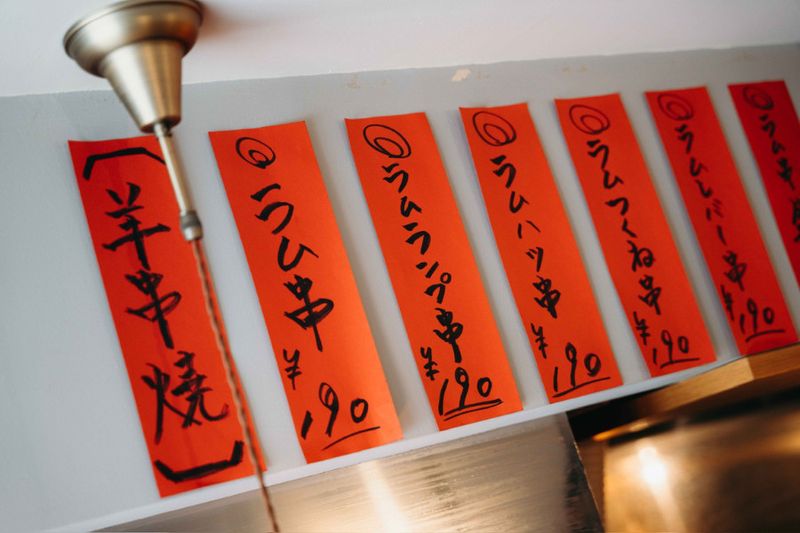 〔羊串焼〕
◎ラム串 ¥190
◎ラムランプ串 ¥190
◎ラムハツ串 ¥190
◎ラムつくね串 ¥190
◎ラムレバー串 ¥190
◎ラム串